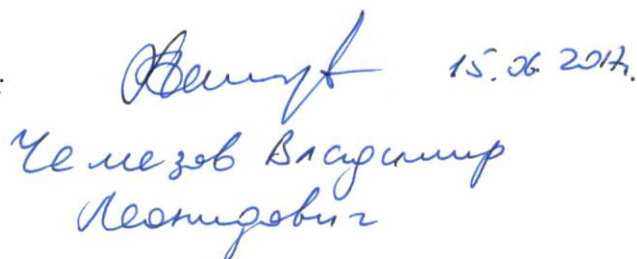 15.06.2017г.
Чемезов Владимир
Леонидович